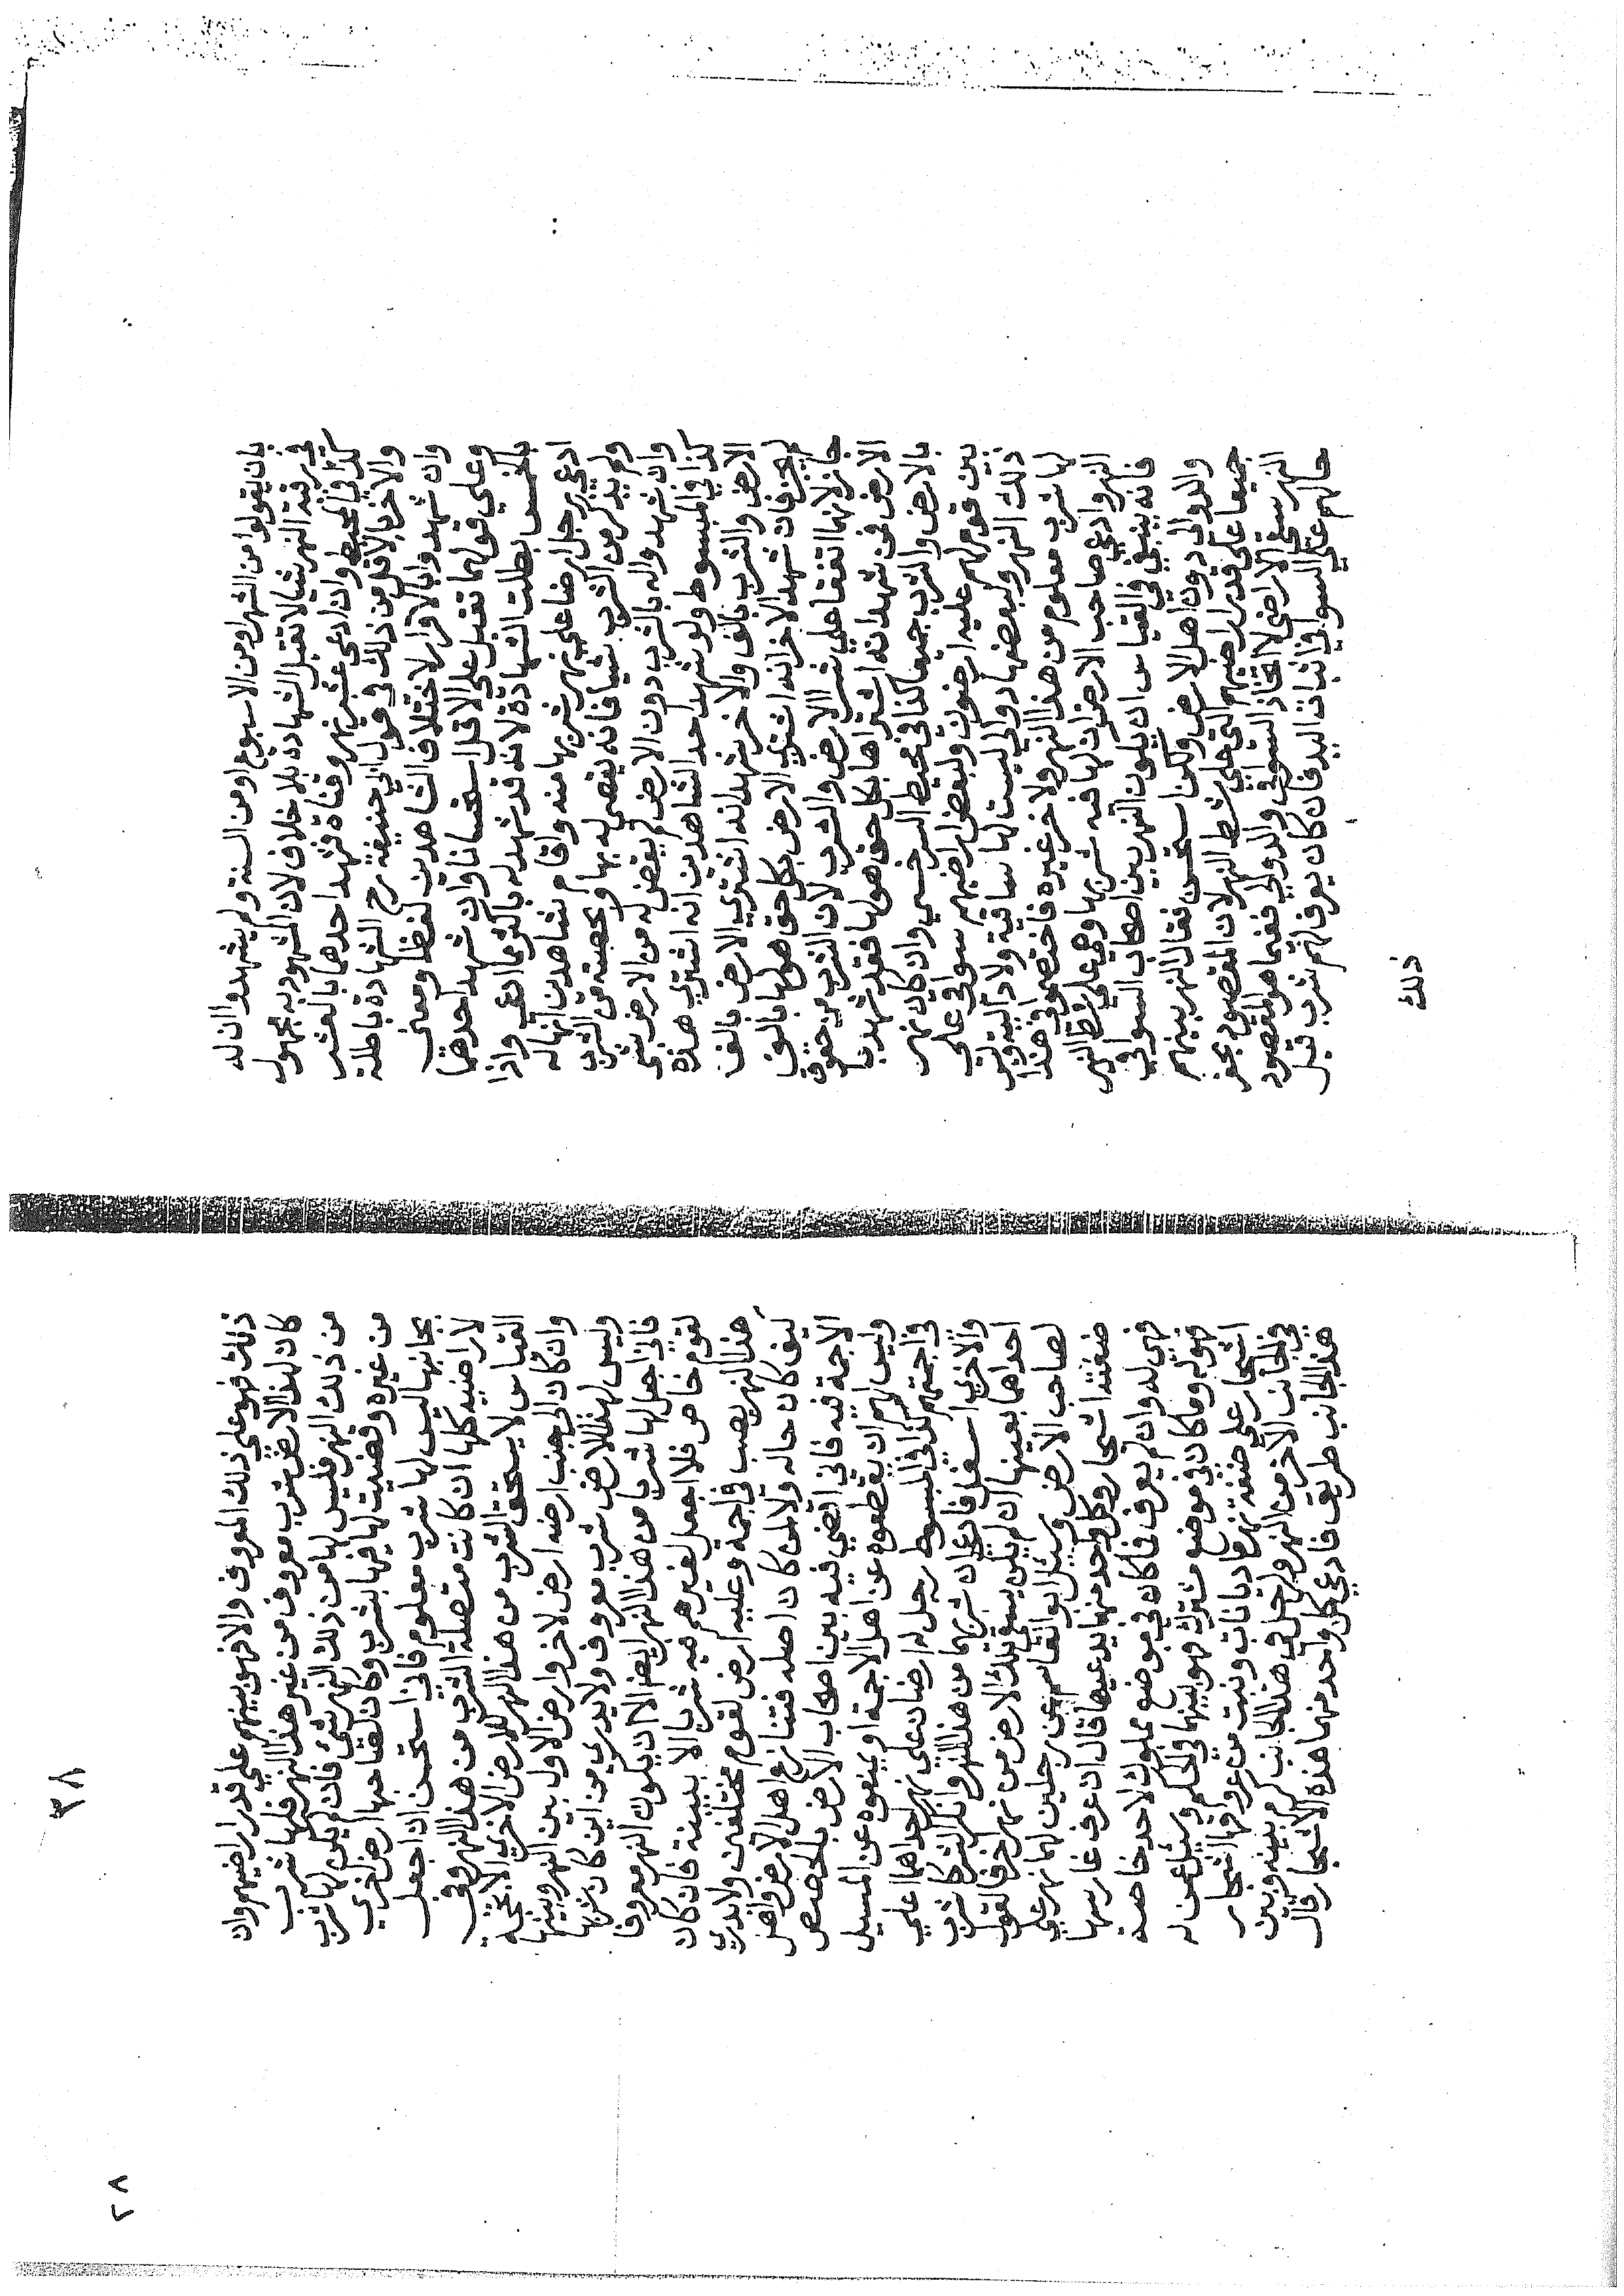 بان يقولوا من الشهر او من الاسبوع او من السنة ولم يشهدوا ان له
في رقبة النهر شيا لا تقبل الشهادة بلا خلاف لان المشهود به مجهول
كذا في المحيط وان ادعى عشر نهر وقناة فشهد احدهما بالعشر
والاخر بالاقل من ذلك في قول ابي حنيفة رح الشهادة باطلة
وان شهدوا بالاقرار لاختلاف الشاهدين لفظا ومعنى
وعلي قولهما تقبل علي الاقل استحسانا وان شهد احدهما
بالخمس بطلت الشهادة لانه قد شهد له باكثر مما ادعى واذا
ادعى رجل ارضا علي نهر شربها منه واقام شاهدين انها له
ولم يذكر من الشرب شيا فانه يقضي له بها وبحصته من الشرب
وان شهدوا له بالشرب دون الارض لم يقض له من الارض بشي
كذا في المبسوط ولو شهد احد الشاهدين انه اشتري هذه
الارض والشرب بالف والاخر شهد انه اشتري الارض بالف
لم يجز فان شهد الاخر انه اشتري الارض بكل حق هو لها بالف
جاز لانهما اتفقا علي شرا الارض والشرب لان الشرب من حقوق
الارض فمن شهد انه اشتراها بكل حق هو لها فقد شهد
بالارض والشرب جميعا كذا في محيط السرخسي وان كان نهر
بين قوم لهم عليه ارضون ولبعض اراضيهم سواقي علي
ذلك النهر ولبعضها دوالي وليست لها ساقية ولا دالية و
لها شرب معلوم من هذا النهر ولا اخر غيره فاختصموا في هذا
النهر وادعى صاحب الارض ان لها فيه شربا وهي علي شط النهر
فانه ينبغي في القياس ان يكون النهر بين اصحاب السواقي
والدوالي دون اهل الارض ولكن استحسن فقال النهر بينهم
جميعا علي قدر اراضيهم التي علي شط النهر لان المقصود بحفر
النهر سقي الاراضي لا اتخاذ السواقي والدوالي ففيما هو المقصود
حالهم علي السوا في اثبات اليد فان كان يعرف لهم شرب قبل
ذلك
٣٨
ذلك فهو علي ذلك المعروف والا فهو بينهم علي قدر اراضيهم وان
كان لهذا الارض شرب معروف من غير هذا النهر فلها شرب
من ذلك النهر فليس لها من ذلك النهر شي فان لم يكن لها شرب
من غيره وقضيت لها فيها بشرب وكان لصاحبها ارض اخري
بجانبها ليس لها شرب معلوم فاني استحسن ان اجعل
لاراضيه كلها ان كانت متصلة الشرب من هذا النهر وفي
القياس لا يستحق الشرب من هذا النهر للارض الاخري الا بحجة
وان كان الي جنب ارضه ارض لاخر وارض الاول بين النهر وبينها
وليس لهذا الارض شرب معروف ولا يدري من اين كان شربها
فاني اجعل لها شربا من هذا النهر ايضا الا ان يكون النهر معروفا
لقوم خاص فلا اجعل لغيرهم فيه شربا الا ببينة فان كان
هذا النهر يصب في اجمة وعليه ارض لقوم مختلفين ولا يدري
كيف كان حاله ولا لمن كان اصله فتنازع اهل الارض واهل
الاجمة فيه فاني اقضي فيه بين اصحاب الارض بالحصص
وليس لهم ان يقطعوه عن اهل الاجمة او يمنعوه عن المسيل
في اجمتهم كذا في المبسوط رجل له ارضان علي نهر احداهما اعلي
والاخري اسفل فادعى ان شربهما من هذا النهر وانكر الشركا شرب
احداهما بعينها ان لم يكن يسقي تلك الارض من نهر اخر فالقول
لصاحب الارض وسئل ابو القاسم عن رجلين لهما نهر علي
ضفته اشجار وكل واحد منهما يدعيها قال ان عرف غارسها
فهي له وان لم يعرف فما كان في موضع مملوك لاحد خاصة
فهو له وما كان في موضع مشترك فهو بينهما في الحكم وسئل عمن له
اشجار علي ضفة نهر ماذيانات ونبت من عروقها اشجار
في الجانب الاخر من النهر ولرجل في هذا الجانب كرم بينه وبين
هذا الجانب طريق فادعى كل واحد منهما هذه الاشجار قال
٢٨